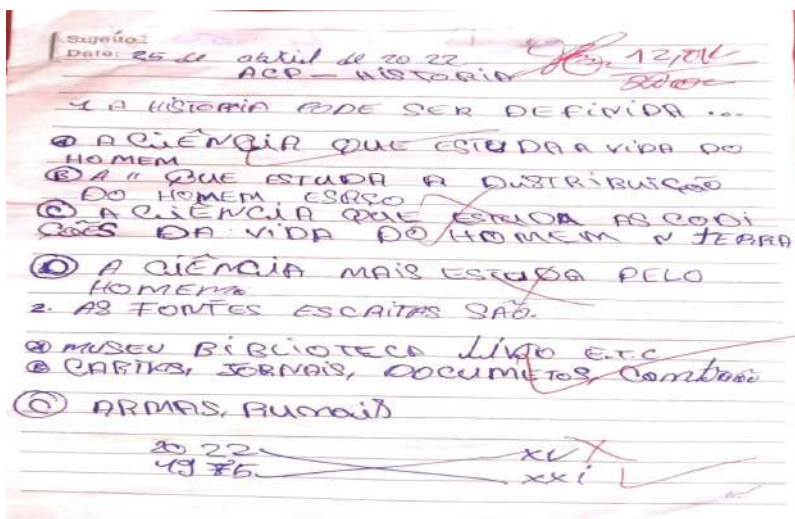 Sujeito:
Data: 25 de abril de 20 22
ACP - HISTORIA
12,0V
1 A HISTORIA PODE SER DEFINIDA ...
A A CiÊNCiA QUE ESTUDA A ViDA DO
HOMEM
B A " QUE ESTUDA A DiSTRiBUiÇÃO
DO HOMEM ESPAÇO
C A CiÊNCiA QUE ESTUDA AS CODI
ÇÕES DA ViDA DO HOMEM N TERRA
D A CiÊNCiA MAiS ESTUDA PELO
HOMEM
2. AS FONTES ESCRiTAS SÃO.
A MUSEU BiBLiOTECA LiVRO E.T.C
B CARTAS, JORNAiS, DOCUMETOS,
C ARMAS,
20 22 XV
19 75 XXi